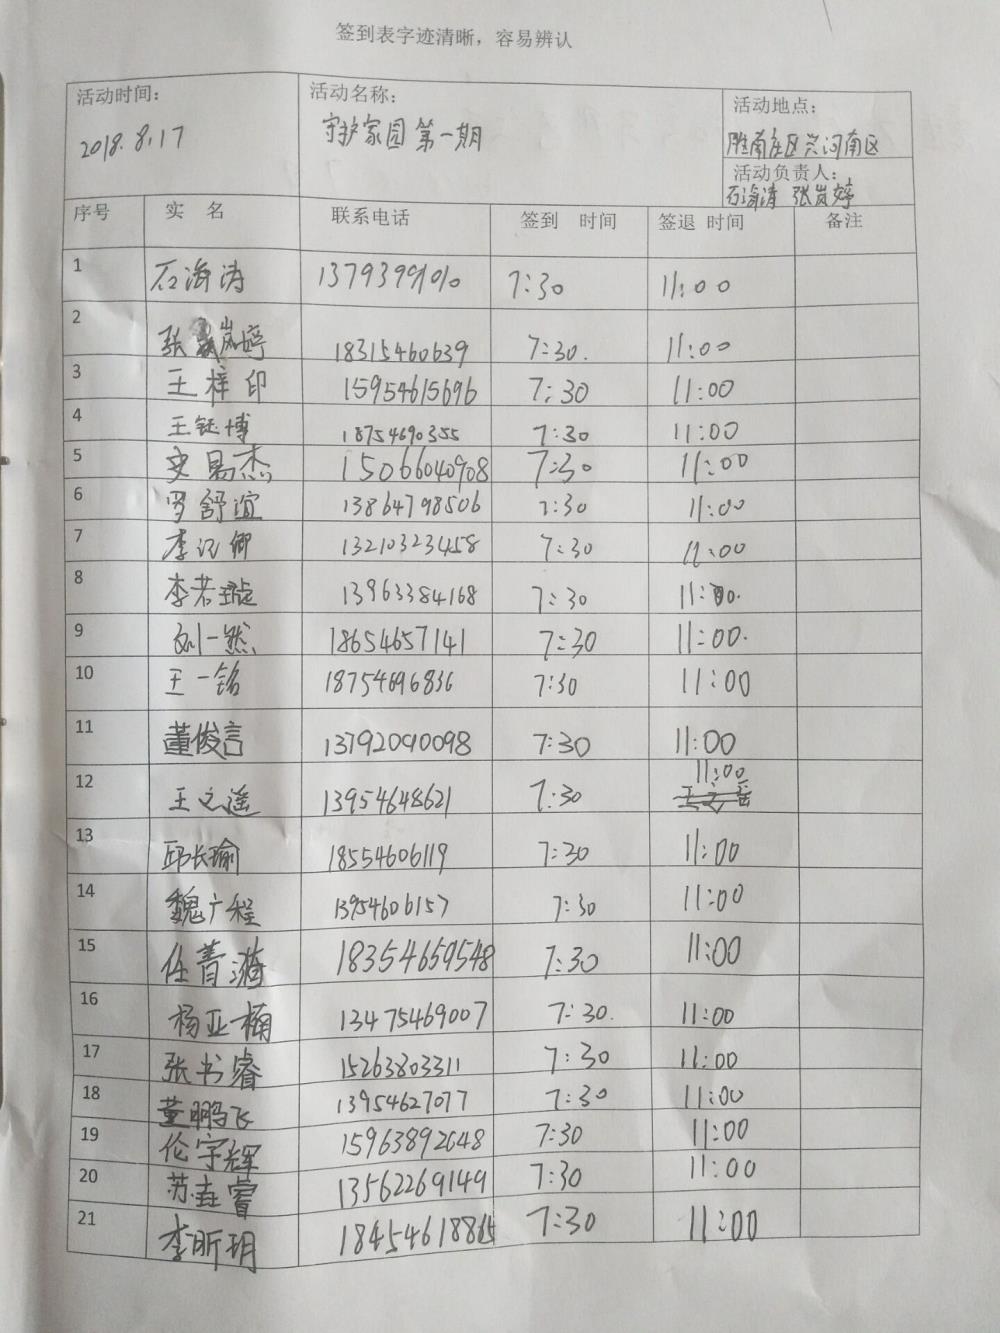 签到表字迹清晰，容易辨认
活动时间： 活动名称： 活动地点：
2018.8.17 守护家园第一期 胜南社区兴河南区
活动负责人：
石海涛 张岚婷
序号 实 名 联系电话 签到 时间 签退 时间 备注
1 石海涛 13793991010 7:30 11:00
2 张岚婷 18315460639 7:30. 11:00
3 王梓印 15954615696 7:30 11:00
4 王钰博 18754690355 7:30 11:00
5 史易杰 15066040908 7:30 11:00
6 罗舒谊 13864798506 7:30 11:00
7 李卿 13210323458 7:30 11:00
8 李若璇 13963384168 7:30 11:00.
9 刘一然 18654657141 7:30 11:00.
10 王一铭 18754696836 7:30 11:00
11 董俊言 13792090098 7:30 11:00
12 王之遥 13954648621 7:30 11:00
13 邱长瑜 18554606119 7:30 11:00
14 魏广程 13954606157 7:30 11:00
15 任菁漪 18354659548 7:30 11:00
16 杨亚楠 13475469007 7:30. 11:00
17 张书睿 15263803311 7:30 11:00
18 董鹏飞 13954627077 7:30 11:00
19 伦宇辉 15963892648 7:30 11:00
20 苏垚睿 13562269149 7:30 11:00
21 李昕玥 7:30 11:00